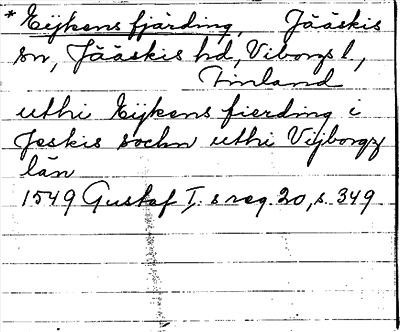 * Eijkens fjärding, Jääskis
sn, Jääskis hd, Viborgs l,
Finland
uthi Eijkens fierding i
Jeskis sochn uthi Vijborgz
län
1549 Gustaf I:s reg. 20, s. 349